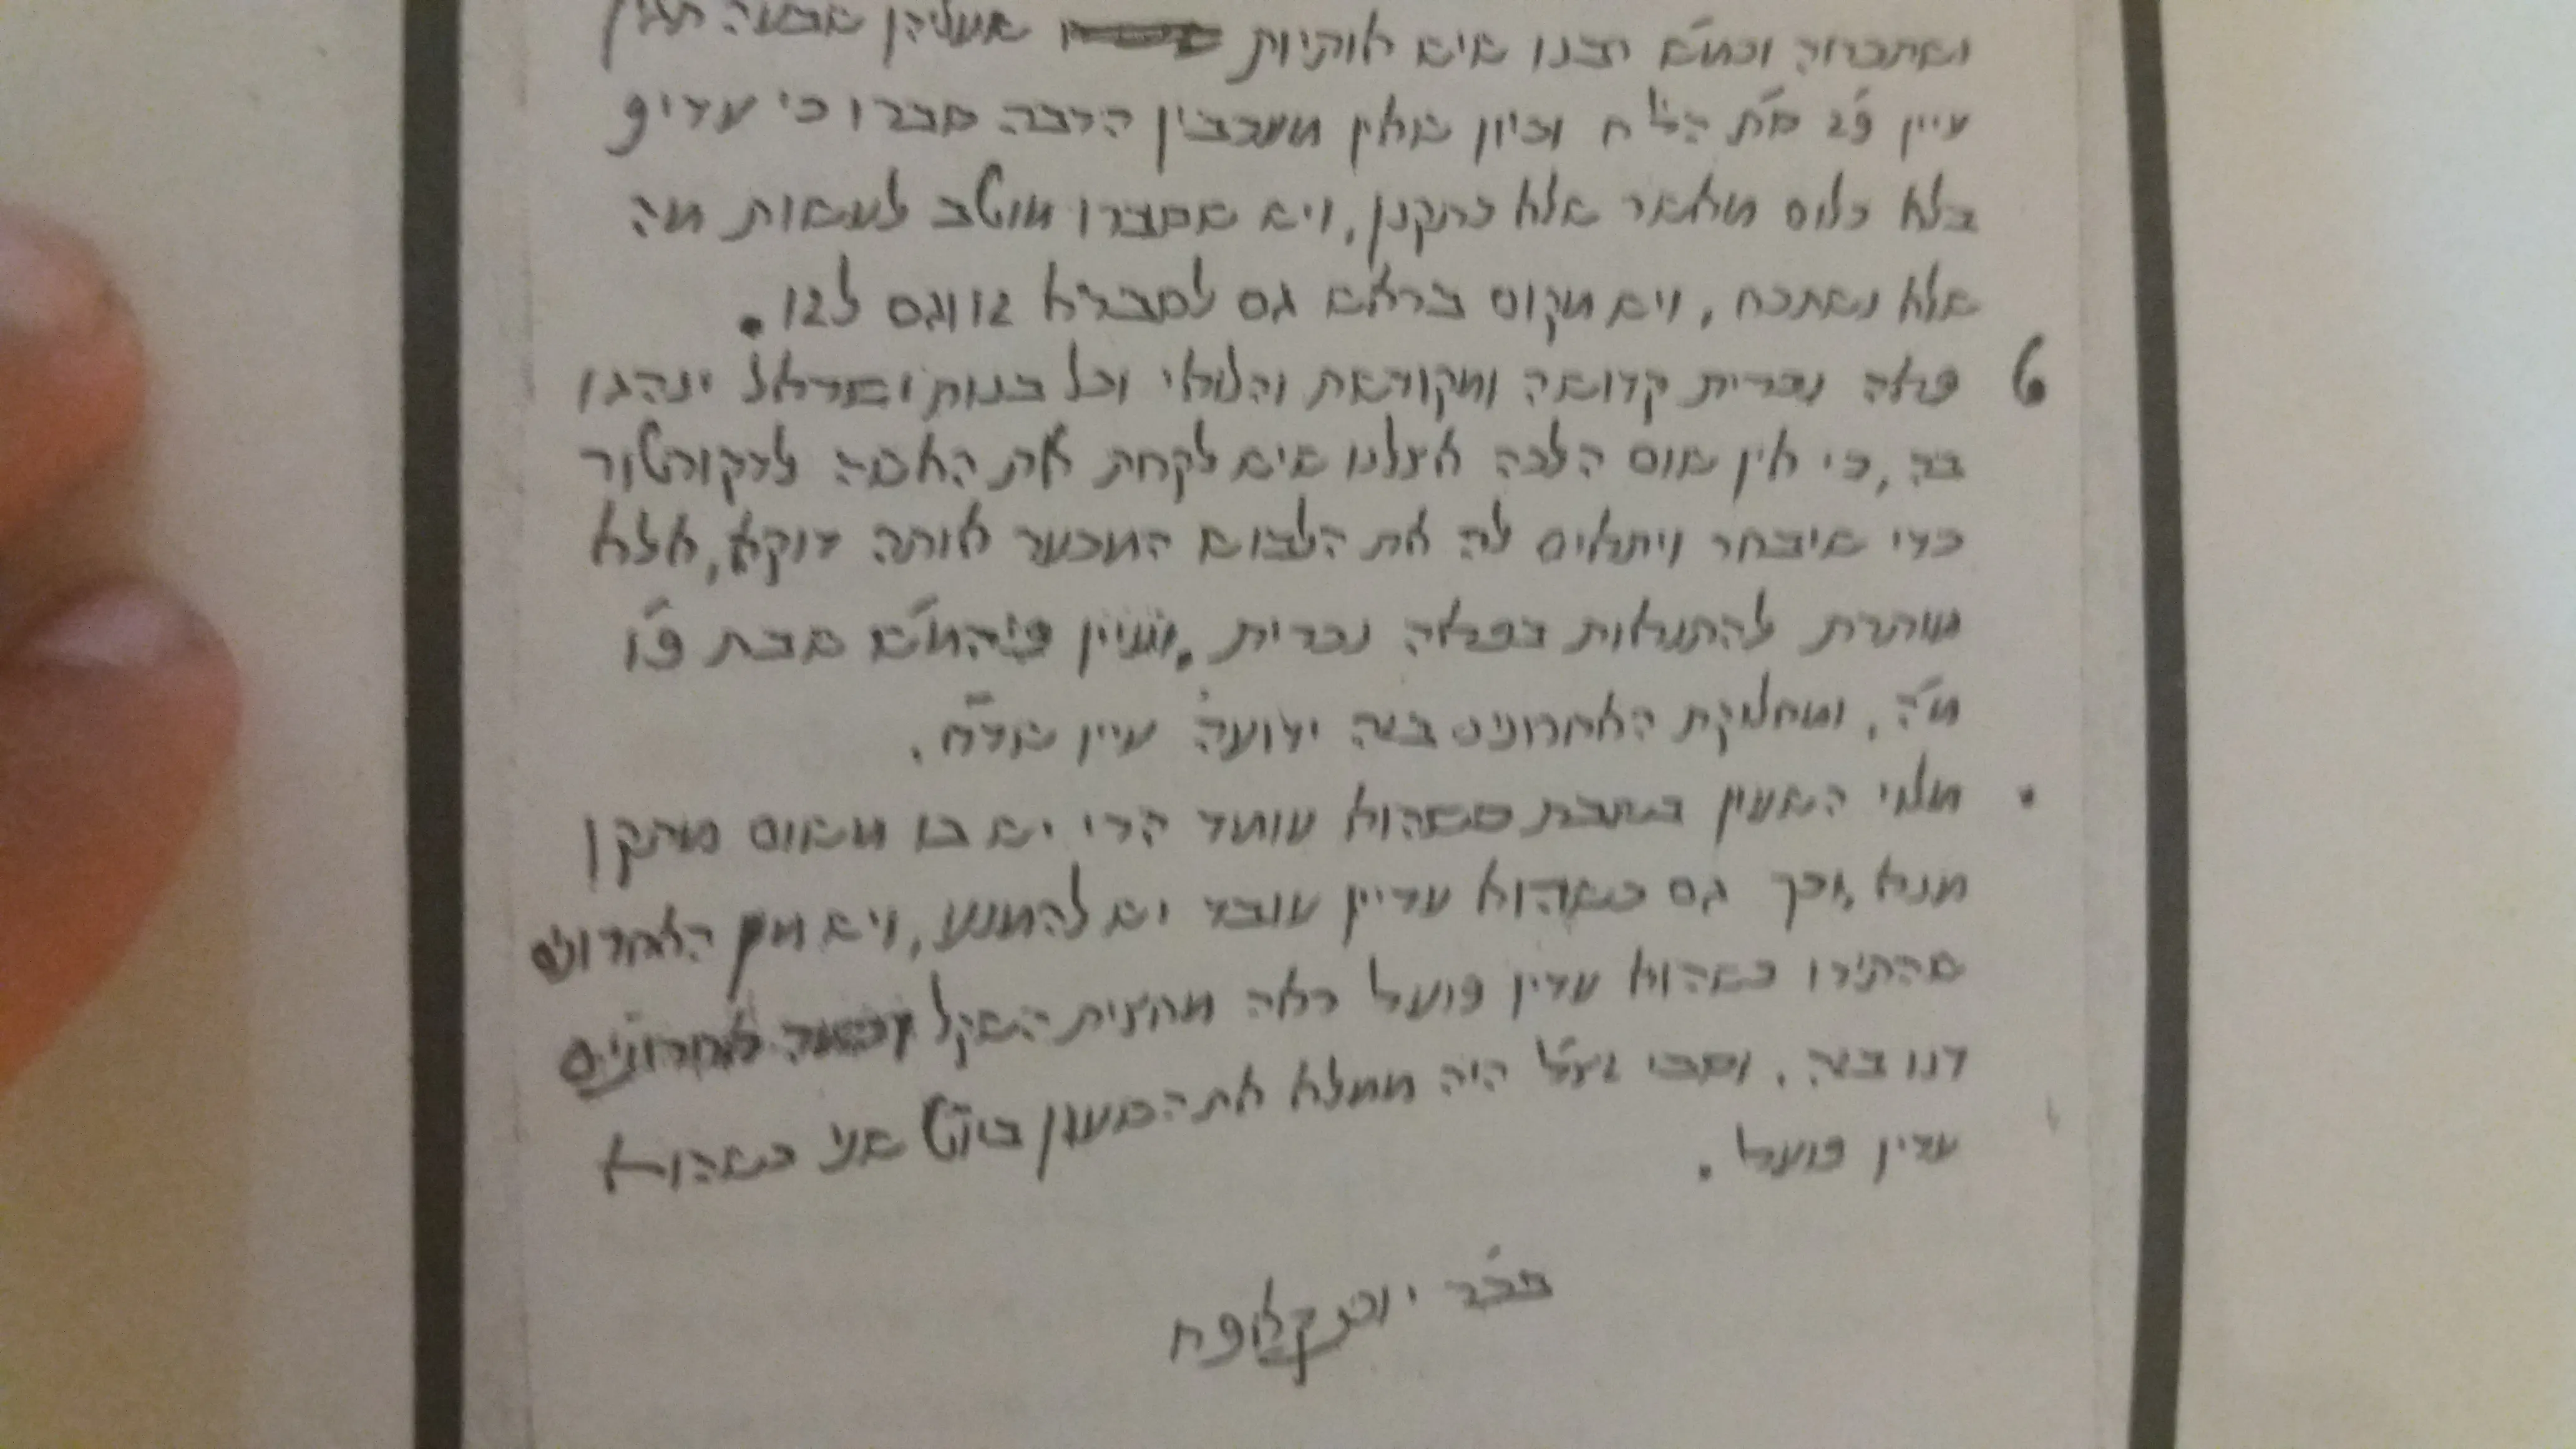 ושתכרוה וכמ"ש רבנו שיש אותיות שעליהן שבעה תגין
עיין פ"ב ס"ת הל"ח וכיון שאין מעכבין הרבה סברו כי עדיף
בלא כלום מאשר שלא כתקנן, ויש שסברו מוטב לעשות מה
שלא נשתכח, ויש מקום בראש גם לסברא זו וגם לזו.
ט פאה נכרית קדושה ומקודשת והלואי וכל בנות ישראל ינהגו
בה, כי אין שום הלכה אצלנו שיש לקחת את האשה לדקורטור
כדי שיבחר ויתאים לה את הלבוש המכער אותה דוקא, אלא
מותרת להתנאות בפאה נכרית. ועיין פיהמ"ש שבת פ"ו
מ"ה, ומחלוקת האחרונים בזה ידועה עיין שד"ח.
מלוי השעון בשבת כשהוא עומד הרי יש בו משום מתקן
מנא, וכך גם כשהוא עדיין עובד יש להמנע, ויש מן האחרונים
שהתירו כשהוא עדין פועל ראה מחצית השקל אחרונים
דנו בזה. וסבי זצ"ל היה ממלא את השעון ביו"ט שני כשהוא
עדין פועל.
בכ"ר יוסף קאפח